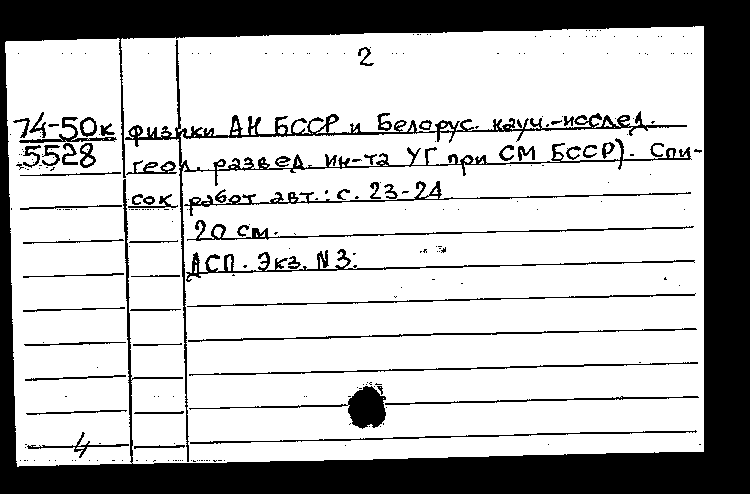 2
74-50к физики АН БССР и Белорус. науч.-исслед.
5528 геол. развед. ин-та УГ при СМ БССР). Спи-
сок работ авт.: с. 23-24
20 см.
АСП. Экз. N3:
4